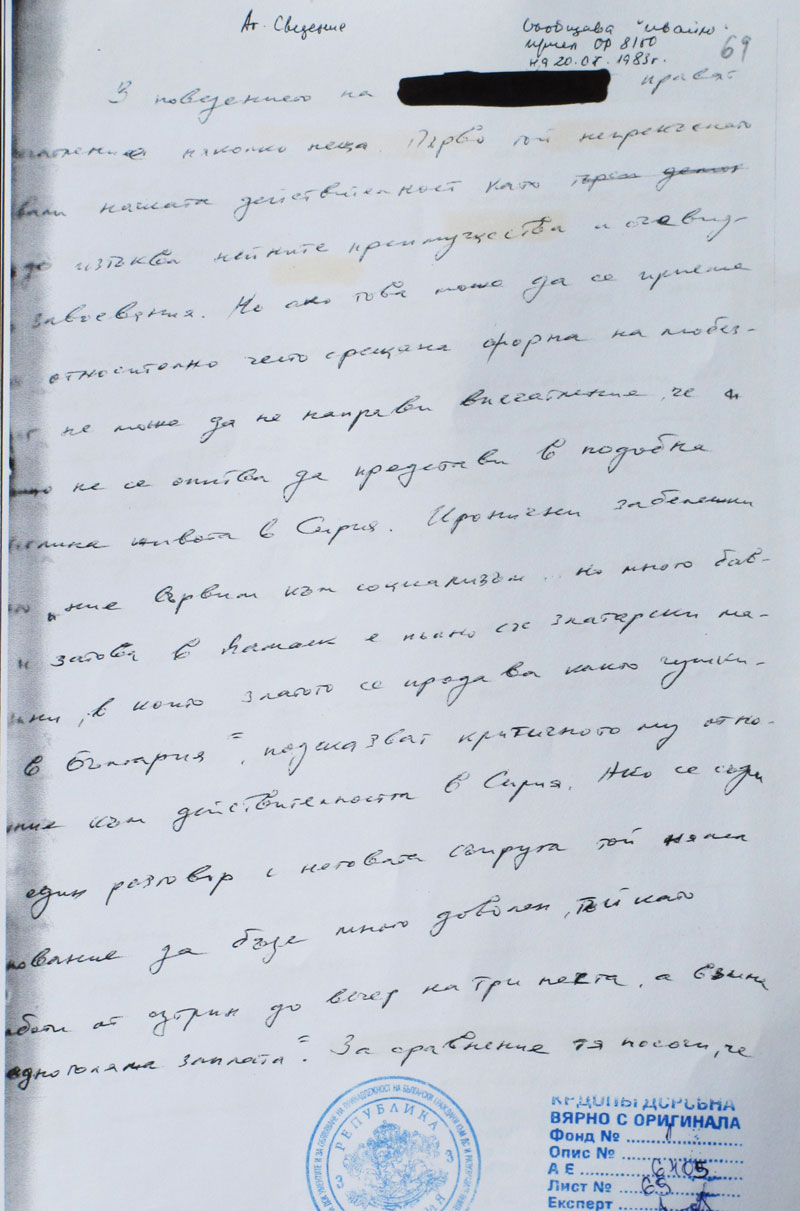 Аг. Сведение
Съобщава "Ивайло"
приел ОР 8
на 20.05.1983г.
69
В поведението на правят
няколко неща. Първо той непрекъснато
нашата действителност като
изтъква нейните преимущества и очевид-
завоевания. Но ако това може да се приеме
относително често срещана форма на любез-
не може да не направи впечатление, че и
не се опитва да представи в подобна
живота в Сирия. Иронични забележки
"ние вървим към социализъм... но много бав-
затова в Дамаск е пълно със златарски ма-
, в които златото се продава както чушки-
в България", подсказват критичното му отно-
към действителността в Сирия. Ако се съди
един разговор с неговата съпруга той няма
да бъде много доволен, тъй като
от сутрин до вечер на три места, а взима
една голяма заплата". За сравнение тя посочи, че
РЕПУБЛИКА
КРДОПБГДСРСБНА
ВЯРНО С ОРИГИНАЛА
Фонд № 1
Опис №
А Е
Лист № 69
Експерт